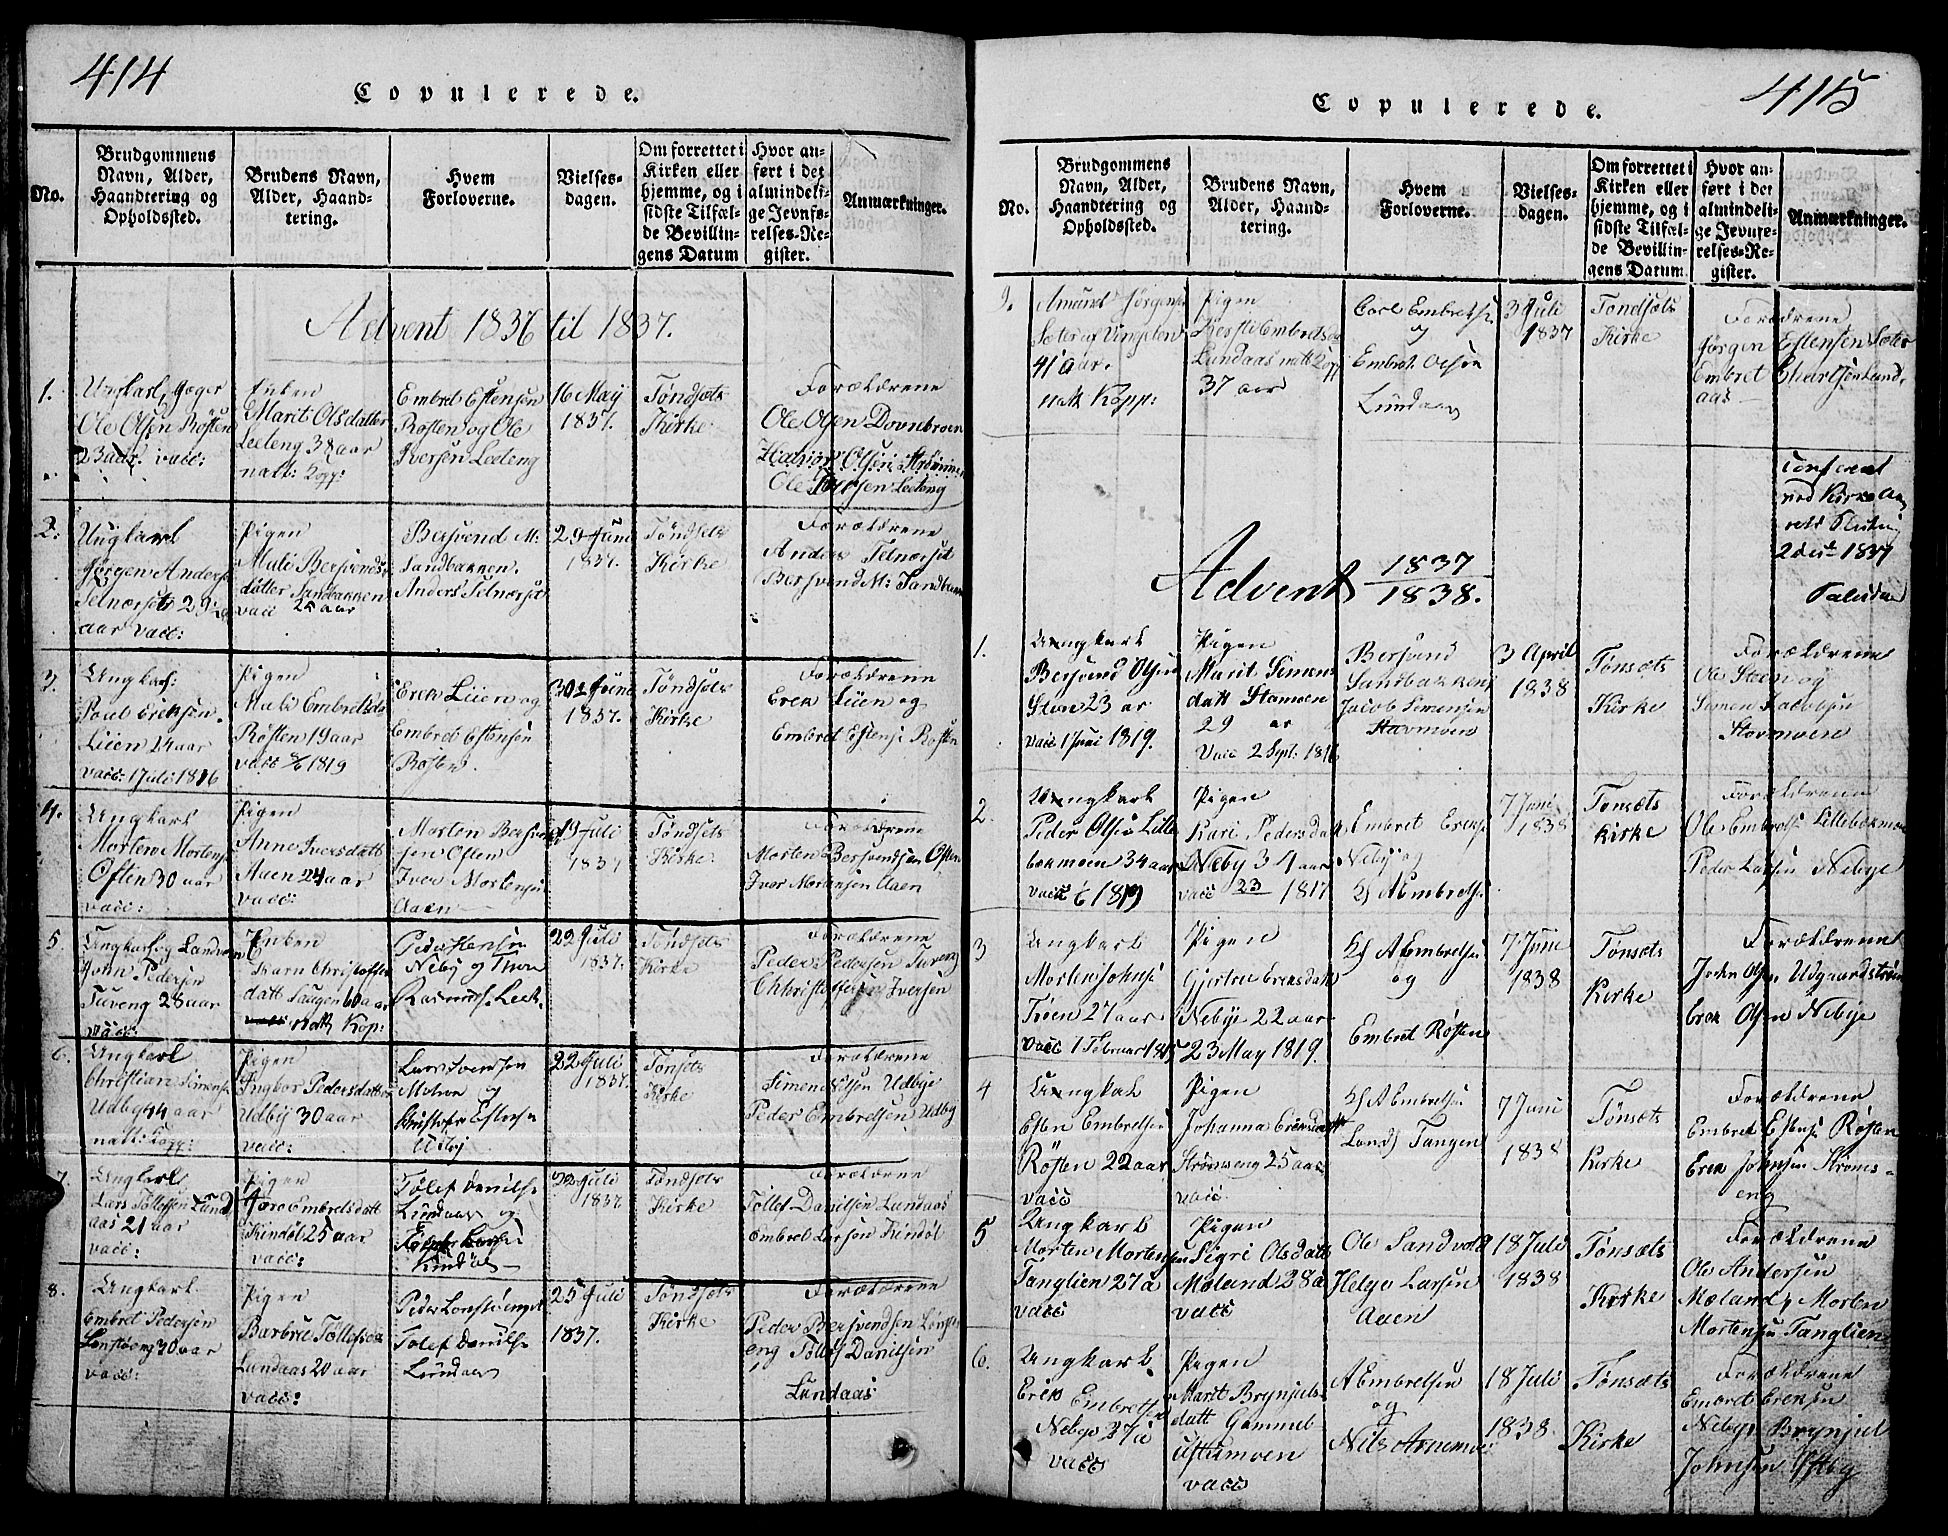 414
Copulerede.
No.
Brudgommens
Navn, Alder,
Haandtering og
Opholdssted.
Brudens Navn,
Alder, Haand-
tering.
Hvem
Forloverne.
Vielses-
dagen.
Om forrettet i
Kirken eller
hjemme, og i
sidste Tilfæl-
de Bevillin-
gens Datum
Hvor an-
ført i det
almindeli-
ge Jevnfø-
relses-Re-
gister.
Anmærkninger.
Advent 1836 til 1837.
1.
Ungkarl, Jæger
Ole Olsen Røsten
23 aar. vacc:
Enken
Marit Olsdatter
Leeteng 38 aar
natt: Kopp:
Embret Estensen
Røsten og Ole
Iversen Leeteng
16 Maij
1837.
Tøndsets
Kirke
Forældrene
Ole Olsen Dovnbroen
Ole Iversen Leeteng
2.
Ungkarl
Jørgen Anders
Telneset 29
aar vacc:
Pigen
Mali Bersvends
datter Sandbakken
vacc 25 aar
Bersvend M:
Sandbakken.
Anders Telneset
29 Juni
1837.
Tøndsets
Kirke
Forældrene
Anders Telneset
Bersvend M: Sandbakk
3.
Ungkarl:
Poul Eriksen
Liien 24 aar
vacc: 1 Juli 1816
Pigen
Mali Embretsd
Røsten 19 aar
vacc 1819
Erik Liien og
Embret Estensen
Røsten.
30 Juni
1837.
Tøndsets
Kirke
Forældrene
Erik Liien og
Embret Estens: Røsten
4.
Ungkarl
Morten Mortens
Østen 30 aar
vacc:
Pigen
Anne Iversdatt
Aaen 24 aar
vacc:
Morten Bersvend
sen Østen
Iver Mortensen
Aaen
19 Juli
1837
Tøndsets
Kirke
Forældrene
Morten Bersvendsen Østen
Iver Mortensen Aaen
5.
Ungkarl og Landværn
John Pedersen
Tuveng 28 aar
vacc:
Enken
Karn Christofers
datt Haugen 60 aar
natt Kop:
Peder Stensen
Neby og Thore
Rasmus: Leek
22 Juli
1837.
Tøndsets
Kirke
Forældrene
Peder Pedersen Tuveng
Christoffer Iversen
6.
Ungkarl
Christian Simens
Udby 44 aar
natt: Kopp:
Pigen
Ingbor Pedersdatter
Udbij 30 aar
vacc:
Lars Svendsen
Moen og
Christoffer Estensen
Udbij
22 Juli
1837.
Tønsets
Kirke
Forældrene
Simen Nilsen Udbije
Peder Embretsen Udbij
7.
Ungkarl
Lars Tollefsen Lund
aas 21 aar
vacc:
Pigen
Goro Embretsdatt
Kindøl 25 aar
vacc:
Tollef Danilse
Lundaas og
Kindøl
22 Juli
1837
Tøndsets
Kirke
Forældrene
Tollef Danielsen Lundaas
Embret Larsen Kindøl
8.
Ungkarl.
Embret Pedersen
Lonstøeng 30 aar
vacc:
Pigen
Barbrue Tollefsda
Lundaas 20 aar
vacc:
Peder Lonstøenget
Tolef Danilse
Lundaas
25 Juli
1837.
Tøndsets
Kirke
Forældrene
Peder Bersvendsen Lonst
eng Tollef Danielsen
Lundaas
415
Copulerede.
No.
Brudgommens
Navn, Alder,
Haandtering og
Opholdssted.
Brudens Navn,
Alder, Haand-
tering.
Hvem
Forloverne.
Vielses-
dagen.
Om forrettet i
Kirken eller
hjemme, og i
sidste Tilfæl-
de Bevillin-
gens Datum.
Hvor an-
ført i det
almindeli-
ge Jevnfø-
relses-Re-
gister.
Anmærkninger.
9.
Amund Jørgens
Sæter af Vingelen
41 aar.
natt Kopp:
Pigen
Kersti Embretsda
Lundaas natt Kopp
37 aar
Carl Embretsen
og
Embret Olsen
Lundaas
3 Juli
1837
Tøndsets
Kirke
Forældrene
Jørgen Estensen Sæter
Embret Charlsen Lund
aas
Confereret
ved Kirke
2 des 1837
Advent 1837
1838.
1.
Ungkarl
Bersvend Olsen
Steen 23 ar
vacc 1 Juni 1819.
Pigen
Marit Simens
datt Stamoen
29 ar
Vacc 2 Sept: 1816
Bersvend
Sandbakken
Jacob Simensen
Stavmoen
3 April
1838
Tønsæts
Kirke
Forældrene
Ole Steen og
Simen
Stovmoen
2
Ungkarl
Peder Olsen Lille
bækmoen 34 aar
vacc 1819
Pigen
Kari Pedersda
Nebij 34 aar
vacc 23 1817
Embret Eriks
Nebij og
A Embretse
7 Juni
1838
Tønsæts
Kirke
Forældrene
Ole Embretsen Lillebekmoe
Peder Larsen Nebije
3
Ungkarl
Morten Johns
Trøen 27 aar
vacc 1 Februar 1815
Pigen
Gjertru Ereksdatt
Nebije 22 aar
23 May 1819.
A Embretsen
og
Embret Røsten
7 Juni
1838
Tønsæts
Kirke
Forældrene
John Olsen Udgaardstrøen
Erek Olsen Nebije
4
Ungkarl
Esten Embretsen
Røsten 22 aar
vacc
Pigen
Johanna Ereksdatt
Strømseng 25 aar
vacc
A Embretsen
Lands Tangen
7 Juni
1838
Tønsæts
Kirke
Forældrene
Embret Estens: Røsten
Erek Johnsen Strøms-
eng
5
Ungkarl
Morten Mortensen
Tanglien 27 a
vacc
Pigen
Sigri Olsdatt
Moland 28 a
vacc
Ole Sandvold
Helge Larsen
Aaen
18 Juli
1838
Tønsæts
Kirke
Forældrene
Ole Andersen
Moeland, Morten
Mortensen Tanglien
6.
Ungkarl
Erek
Embretsen
Nebye 27 a
vacc
Pigen
Marit Brynjuls
datt Gammel
Ustumoen
vacc
A Embretsen
og
Nils Arnemo
18 Juli
1838
Tønsæts
Kirke
Forældrene
Embret Ereksen
Nebye Brynjul
Johnsen